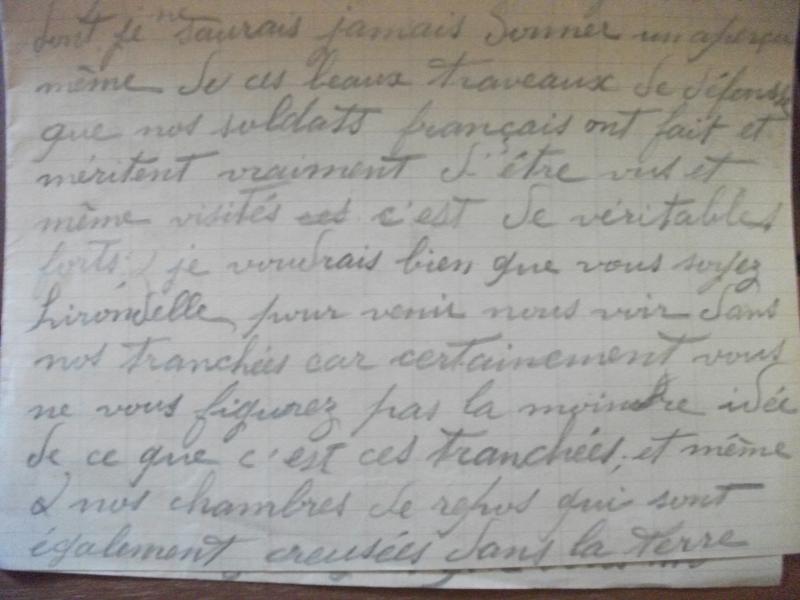 dont je ne saurais jamais donner un aperçu
même de ces beaux traveaux de défense
que nos soldats français ont fait et
méritent vraiment d'être vus et
même visités ces c'est de véritables
forts. je voudrais bien que vous soyez
hirondelle pour venir nous voir dans
nos tranchées car certainement vous
ne vous figurez pas la moindre idée
de ce que c'est ces tranchées, et même
nos chambres de repos qui sont
également creusées dans la terre